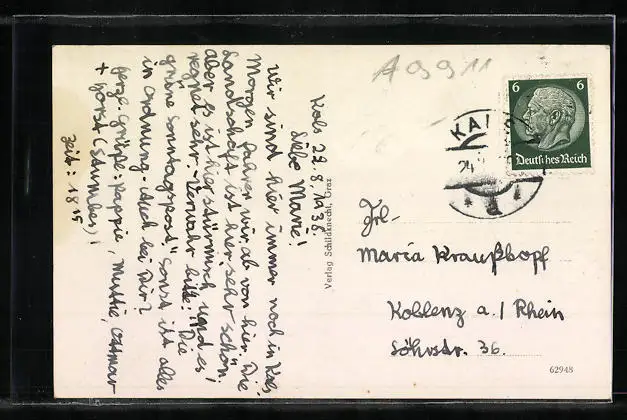 Kals 22.8.1938.
Liebe Marie!
Wir sind hier immer noch in Kals.
Morgen fahren wir ab von hier. Die
Landschaft ist hier sehr schön,
aber es ist hier stürmisch und es
regnet sehr. Verwahr bitte! Die
grüne Sonntagspost", sonst ist alles
in Ordnung. Auch bei Dir?
Herzl. Grüße: Pappie, Muttie, Ottmar
+ Horst (Stumbes)!
Zeit: 18 15
Verlag Schildknecht, Graz
A0991
6 6
Deutsches Reich
KAL
24.
a
Frl.
Maria Kraußkopf
Koblenz a./Rhein
Löhrstr. 36.
62948